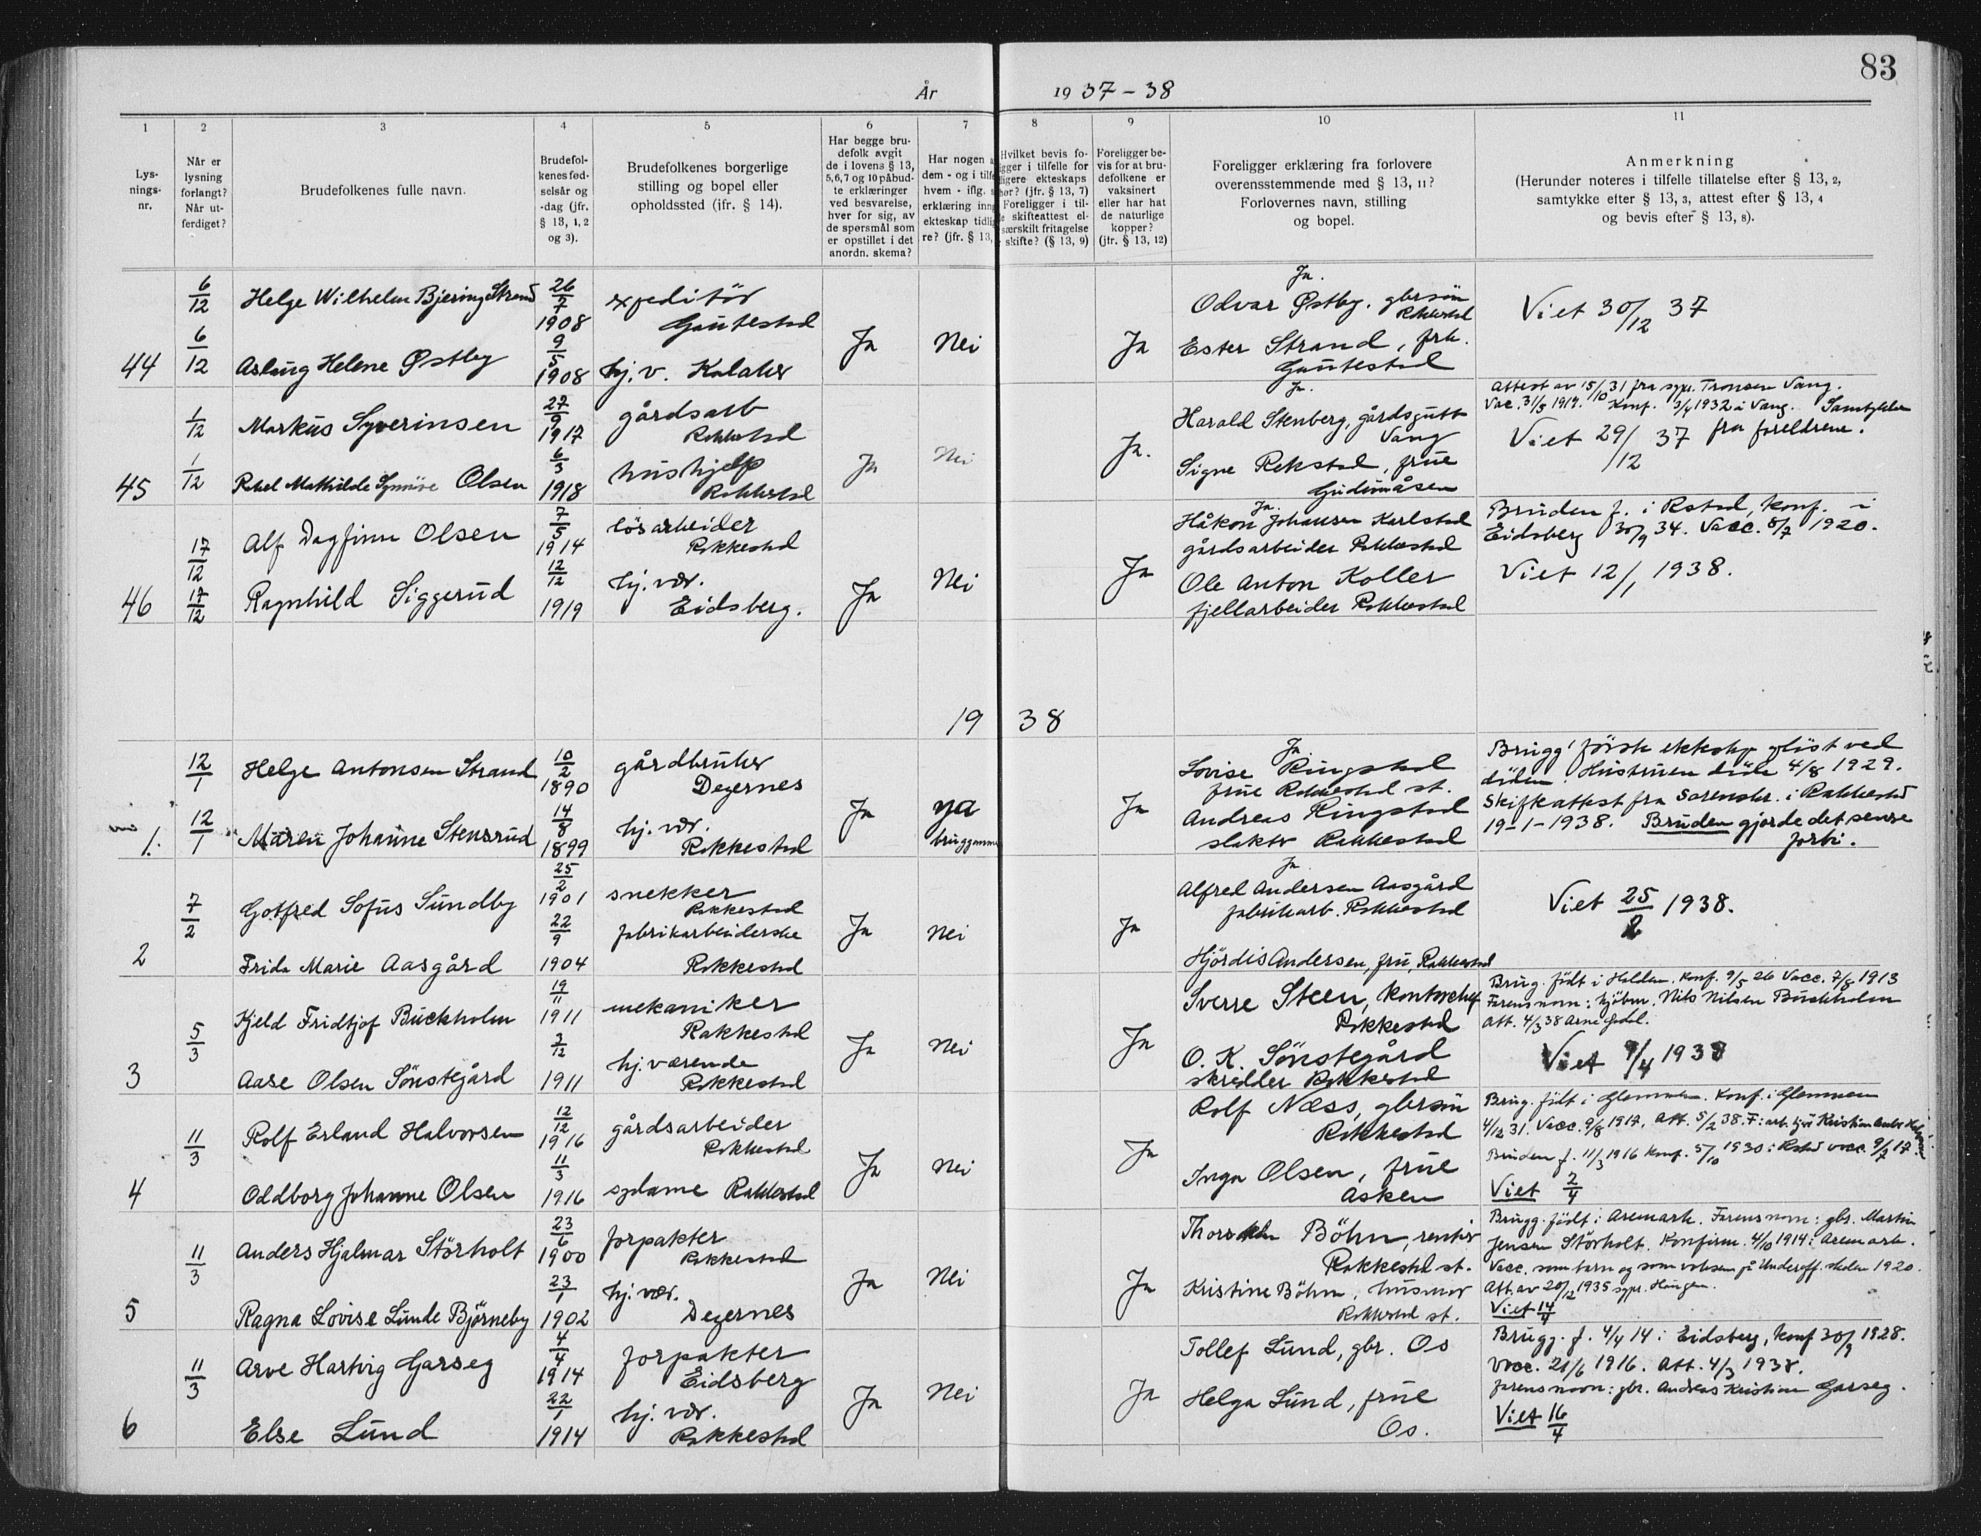 83
År 1937-38
1 2 3 4 5 6 7 8 9 10 11
Lys-
nings-
nr.
Når er
lysning
forlangt?
Når ut-
ferdiget?
Brudefolkenes fulle navn.
Brudefol-
kenes fød-
selsår og
-dag (jfr.
§ 13, 1, 2
og 3).
Brudefolkenes borgerlige
stilling og bopel eller
opholdssted (jfr. § 14).
Har begge bru-
defolk avgit
de i lovens § 13,
5, 6, 7 og 10 påbud-
te erklæringer
ved besvarelse,
hver for sig, av
de spørsmål som
er opstillet i det
anordn. skema?
Har nogen a
dem - og i tilf
hvem - iflg. s
erklæring inng
ekteskap tidli
re? (jfr. § 13,
Hvilket bevis fo-
gger i tilfelle for
ligere ekteskaps
hør? (jfr. § 13, 7)
Foreligger i til-
e skifteattest el-
særskilt fritagelse
skifte? (§ 13, 9)
Foreligger be-
vis for at bru-
defolkene er
vaksinert
eller har hat
de naturlige
kopper?
(jfr. § 13, 12)
Foreligger erklæring fra forlovere
overensstemmende med § 13, 11?
Forlovernes navn, stilling
og bopel.
Anmerkning
(Herunder noteres i tilfelle tillatelse efter § 13, 2,
samtykke efter § 13, 3, attest efter § 13, 4
og bevis efter § 13, 8).
44
6/12 Helge Wilhelm Bjering Strand 26/7 1908 expeditör
Gautestad
6/12 Aslaug Helene Østby 9/5 1908 hj. v. Kolaker
Ja Nei Ja
Ja.
Odvar Østby. gbrsön
Rakkestad
Ester Strand, frk.
Gautestad
Viet 30/12 37
45
1/12 Markus Syverinsen 27/9 1917 gårdsarb
Rakkestad
1/12 Rakel Mathilde Synnöve Olsen 6/3 1918 hushjelp
Rakkestad
Ja Nei Ja.
Ja.
Harald Stenberg, gårdsgutt
Vang
Signe Rekstad, frue
Gudimåsen
Attest av 15/10 31 fra sgpr. Tronsen Vang.
Vac. 31/5 1919. Konf. 3/4 1932 i Vang. Samtykke
fra foreldrene.
Viet 29/12 37
46
17/12 Alf Dagfinn Olsen 7/5 1914 lösarbeider
Rakkestad
17/12 Ragnhild Siggerud 12/12 1919 hj. vær.
Eidsberg.
Ja Nei Ja
Ja.
Håkon Johansen Karlstad
gårdsarbeider Rakkestad
Ole Anton Koller
fjellarbeider Rakkestad
Bruden f. i Rstad, konf. i
Eidsberg 30/9 34. Vacc. 8/7 1920.
Viet 12/1 1938.
1938
1.
12/1 Helge Antonsen Strand 10/2 1890 gårdbruker
Degernes
12/1 Maren Johanne Stensrud 14/8 1899 hj. vær.
Rakkestad
Ja ya
bruggommen
Ja
Ja
Lovise Ringstad
frue Rakkestad st.
Andreas Ringstad
slakter Rakkestad
Brugg' förste ekteskap oplöst ved
döden. Hustruen döde 4/8 1929.
Skifteattest fra Sorenskr. i Rakkestad
19-1-1938. Bruden gjorde det senere
forbi.
2
7/2 Gotfred Sofus Sundby 25/2 1901 snekker
Rakkestad
Frida Marie Aasgård 22/9 1904 fabrikarbeiderske
Rakkestad
Ja Nei Ja
Ja
Alfred Andersen Aasgård
fabrikarb. Rakkestad
Hjördis Andersen, fru, Rakkestad
Viet 25/2 1938.
3
5/3 Kjeld Fridtjof Buckholm 19/11 1911 mekaniker
Rakkestad
Aase Olsen Sönstegård 2/12 1911 hj. værende
Rakkestad
Ja Nei Ja
Sverre Steen, kontorchef
Rakkestad
O. K. Sönstegård
skredder Rakkestad
Brug. födt i Halden. Konf. 9/5 26 Vacc. 7/8 1913
Farens navn: kjöbm. Nils Nilsen Buckholm
Att. 4/3 38
Viet 9/4 1938
4
11/3 Rolf Erland Halvorsen 12/12 1916 gårdsarbeider
Rakkestad
Oddborg Johanne Olsen 11/3 1916 sydame Rakkestad
Ja Nei Ja
Rolf Næss, gbrsön
Rakkestad
Inga Olsen, frue
Asken
Brug. födt i Glemmen. Konf. i Glemmen
4/12 31. Vacc. 9/8 1917. Att. 5/2 38.
Bruden f. 11/3 1916 Konf. 5/10 1930 i Rstad vacc. 9/7 17.
Viet 2/4
5
11/3 Anders Hjalmar Störholt 23/6 1900 forpakter
Rakkestad
Ragna Lovise Lunde Bjørneby 23/1 1902 hj. vær.
Degernes
Ja Nei Ja
Thorvald Böhn, rentier
Rakkestad st.
Kristine Böhn, husmor
Rakkestad st.
Brugg. födt i Aremark. Farens navn: gbr. Martin
Jensen Störholt. Konfirm. 4/10 1914 i Aremark.
Vacc. som barn og som voksen på Underoff. skolen 1920.
Att. av 20/12 1935 sgpr. Haugen.
Viet 14/4
6
11/3 Arve Hartvig Garseg 4/4 1914 forpakter
Eidsberg
Else Lund 22/1 1914 hj. vær.
Rakkestad
Ja Nei Ja
Tollef Lund, gbr. Os
Helga Lund, frue
Os.
Brugg. f. 4/4 14 i Eidsberg, konf 30/9 1928.
Vacc. 21/6 1916. Att. 4/3 1938.
farens navn: gbr. Andreas Kristian Garseg.
Viet 16/4